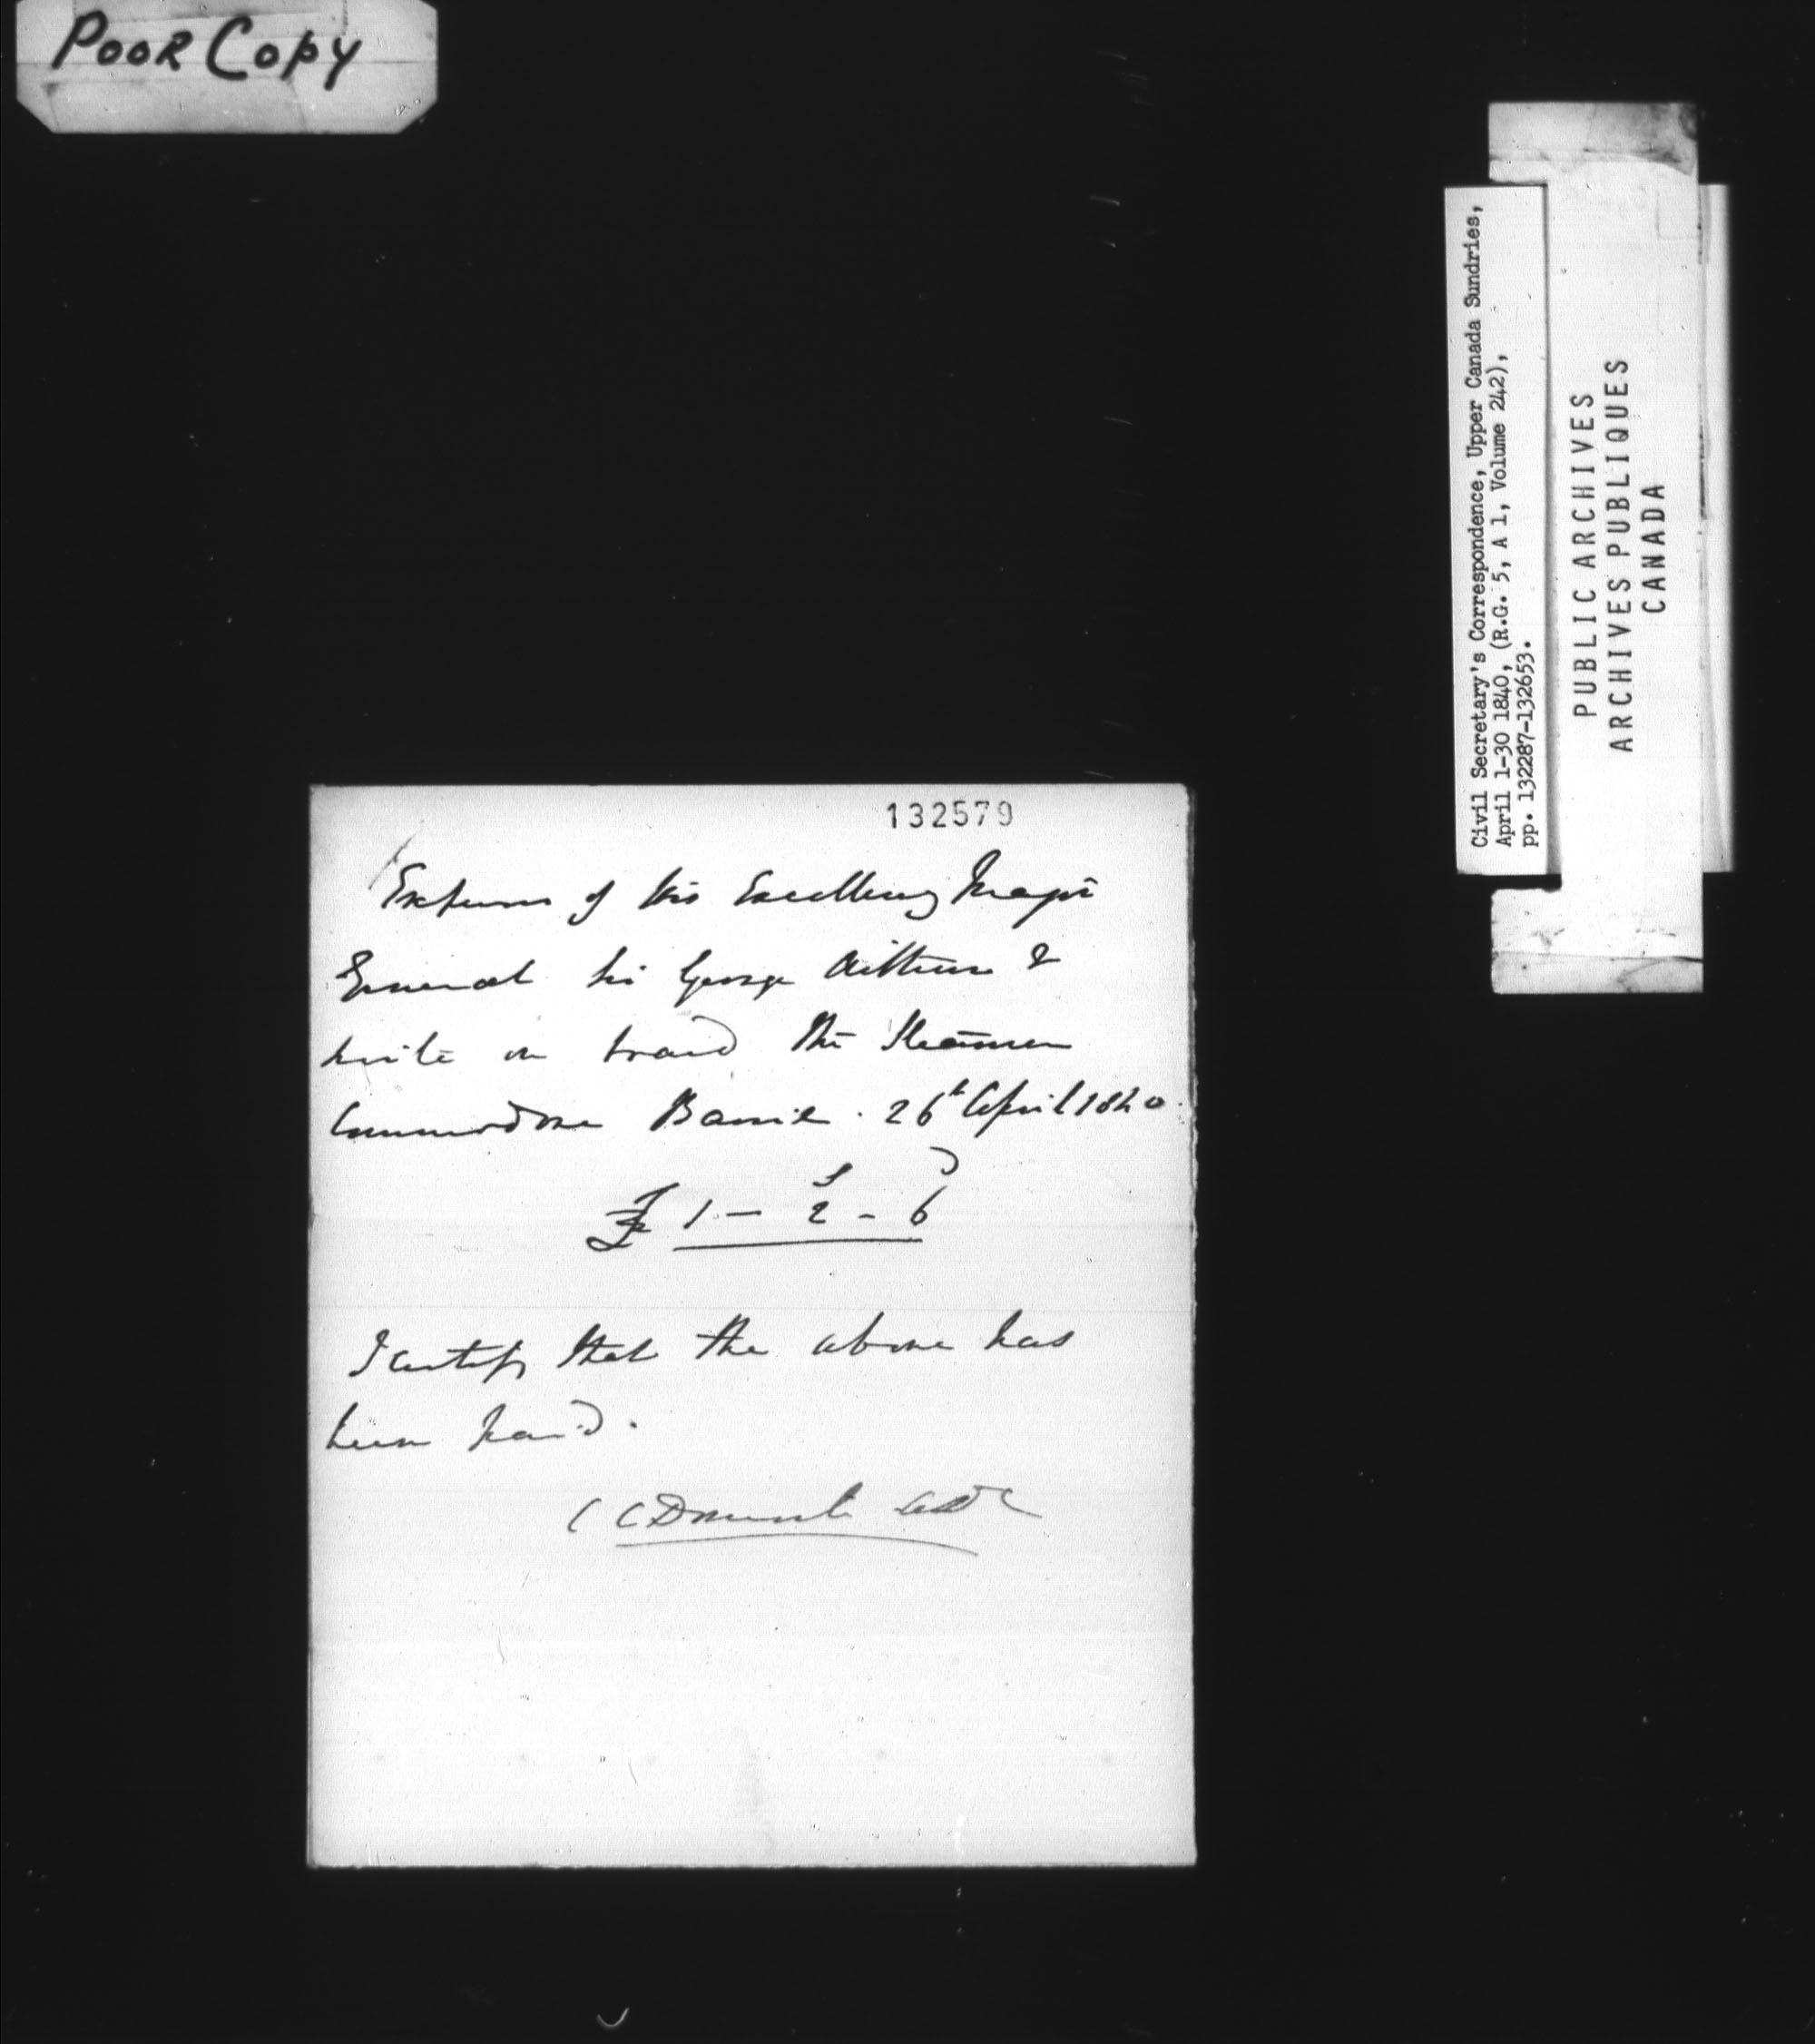 Poor Copy
132579
Expenses of His Excellency Major
General Sir George Arthur &
suite on board the Steamer
Commodore Barrie. 26th April 1840.
s d
£ 1 - 2 - 6
I certify that the above has
been paid.
ADC
Civil Secretary's Correspondence, Upper Canada Sundries,
April 1-30 1840, (R.G. 5, A 1, Volume 242),
pp. 132287-132653.
PUBLIC ARCHIVES
ARCHIVES PUBLIQUES
CANADA